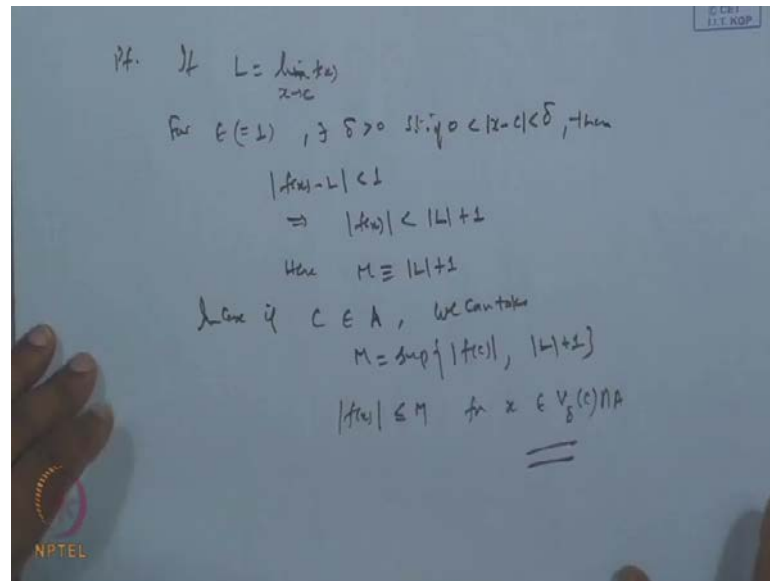 Pf. If L = lim f(x)
x→c
For ε (= 1) , ∃ δ > 0 s.t. if 0 < |x-c| < δ, then
|f(x) - L| < 1
⇒ |f(x)| < |L| + 1
Here M ≡ |L| + 1
In case if C ∈ A, we can take
M = sup { |f(c)|, |L| + 1 }
|f(x)| ≤ M for x ∈ V_δ(c) ∩ A
NPTEL
I.I.T. KGP